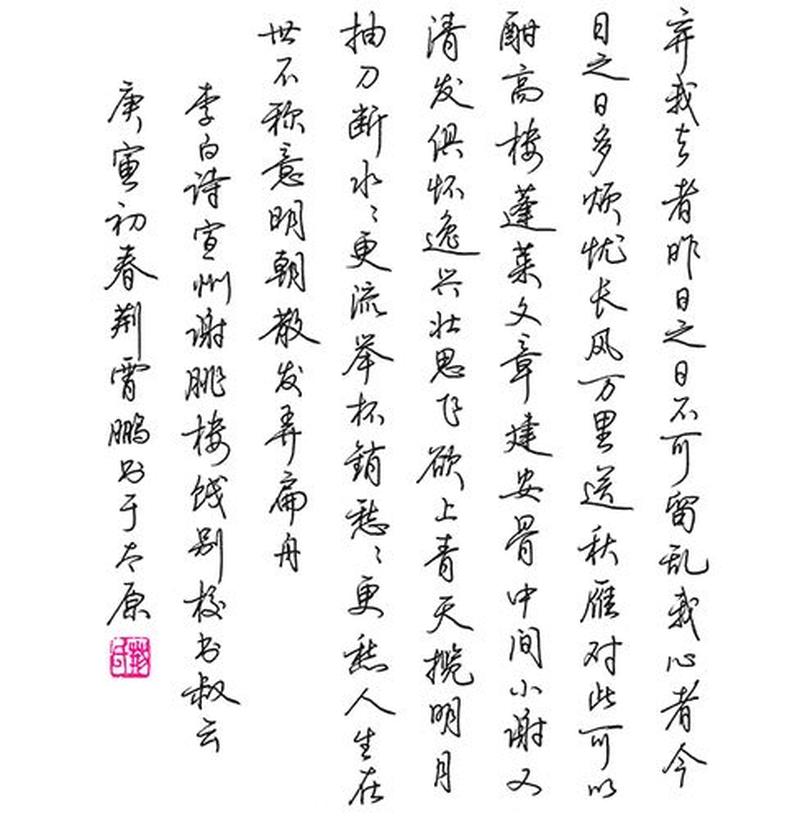 弃我去者昨日之日不可留乱我心者今
日之日多烦忧长风万里送秋雁对此可以
酣高楼蓬莱文章建安骨中间小谢又
清发俱怀逸兴壮思飞欲上青天揽明月
抽刀断水々更流举杯销愁々更愁人生在
世不称意明朝散发弄扁舟
李白诗宣州谢朓楼饯别校书叔云
庚寅初春荆霄鹏书于太原